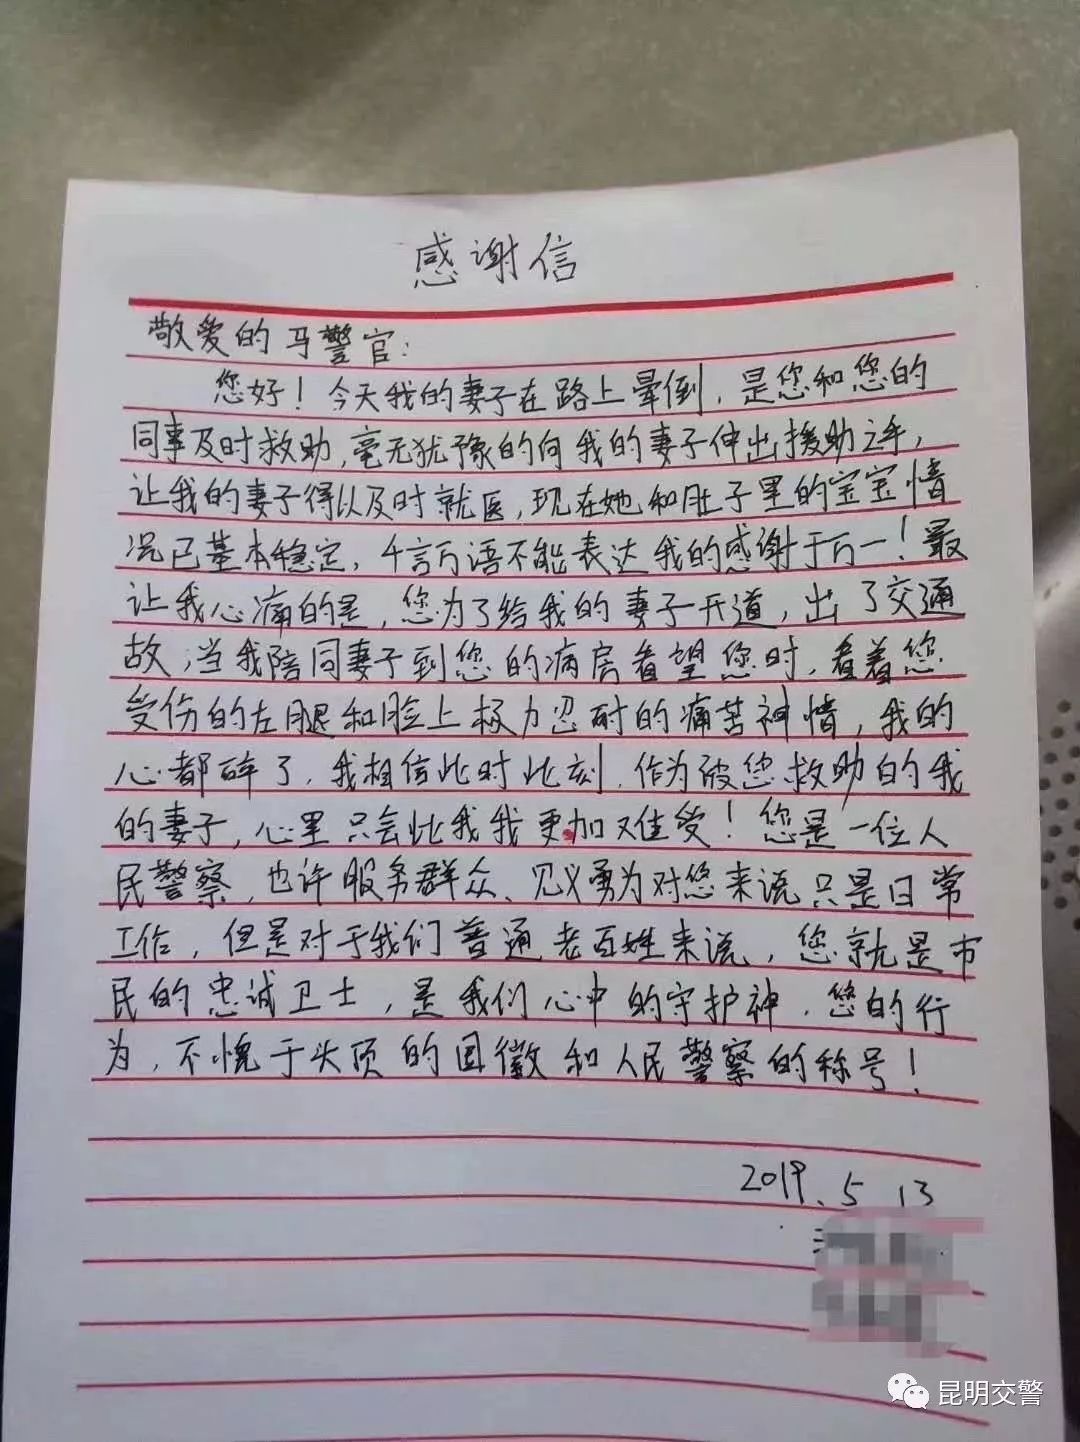 感谢信
敬爱的马警官:
您好！今天我的妻子在路上晕倒，是您和您的
同事及时救助，毫无犹豫的向我的妻子伸出援助之手，
让我的妻子得以及时就医，现在她和肚子里的宝宝情
况已基本稳定，千言万语不能表达我的感谢于万一！最
让我心痛的是，您为了给我的妻子开道，出了交通
故，当我陪同妻子到您的病房看望您时，看着您
受伤的左腿和脸上极力忍耐的痛苦神情，我的
心都碎了，我相信此时此刻，作为被您救助的我
的妻子，心里只会比我我更加难受！您是一位人
民警察，也许服务群众、见义勇为对您来说只是日常
工作，但是对于我们普通老百姓来说，您就是市
民的忠诚卫士，是我们心中的守护神，您的行
为，不愧于头顶的国徽和人民警察的称号！
2019.5 13
昆明交警